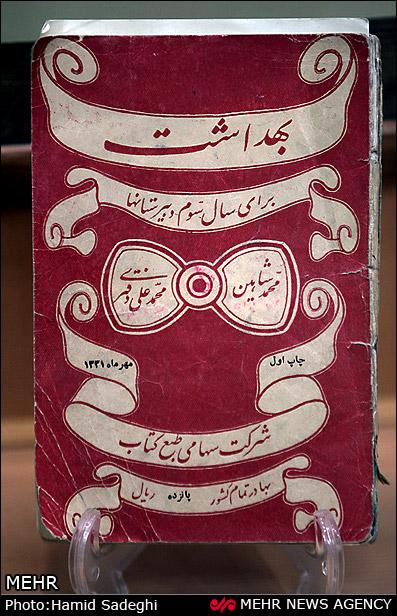 بهداشت
برای سال سوم دبیرستانها
محمد شاهین
محمد علی
چاپ اول
مهر ماه ۱۳۳۱
شرکت سهامی طبع کتاب
بها در تمام کشور پانزده ریال
MEHR
Photo:Hamid Sadeghi
MEHR NEWS AGENCY